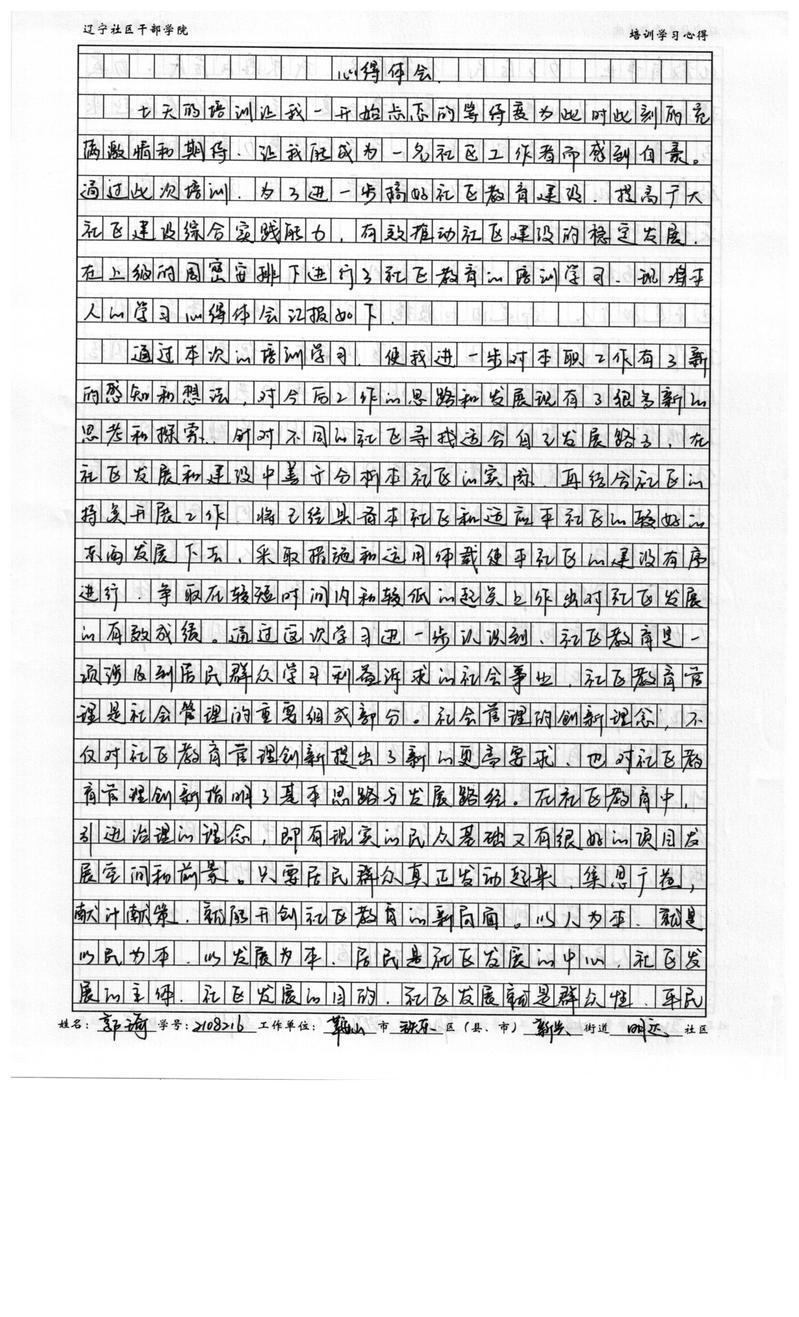 辽宁社区干部学院 培训学习心得
心得体会.
七天的培训让我一开始忐忑的等待变为此时此刻的充
满激情和期待.让我能成为一名社区工作者而感到自豪。
通过此次培训.为了进一步搞好社区教育建设.提高广大
社区建设综合实践能力,有效推动社区建设的稳定发展.
在上级的周密安排下进行了社区教育的培训学习.现将本
人的学习心得体会汇报如下.
通过本次的培训学习.使我进一步对本职工作有了新
的感知和想法,对今后工作的思路和发展现有了很多新的
思考和探索.针对不同的社区寻找适合自己发展路子,在
社区发展和建设中善于分析本社区的实际.再结合社区的
特点开展工作.将已经具备本社区和适应本社区的较好的
东西发展下去,采取措施和运用体裁使本社区的建设有序
进行.争取在较短时间内和较低的起点上作出对社区发展
的有效成绩。通过这次学习进一步认识到、社区教育是一
项涉及到居民群众学习利益诉求的社会事业.社区教育管
理是社会管理的重要组成部分。社会管理的创新理念,不
仅对社区教育管理创新提出了新的更高要求.也对社区教
育管理创新指明了基本思路与发展路经。在社区教育中.
引进治理的理念,即有现实的民众基础又有很好的项目发
展空间和前景。只要居民群众真正发动起来.集思广益,
献计献策.就能开创社区教育的新局面。以人为本.就是
以民为本.以发展为本.居民是社区发展的中心.社区发
展的主体.社区发展的目的.社区发展就是群众性.平民
姓名: 学号:2108216 工作单位: 鞍山 市 铁东 区(县、市) 新兴 街道 明达 社区